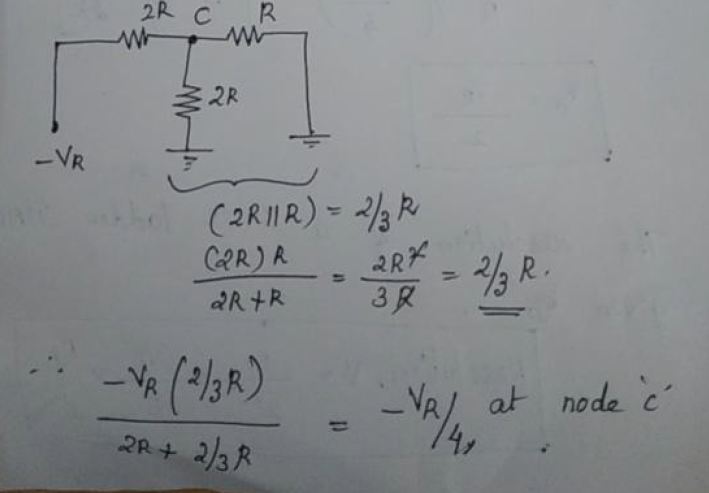 2R C R
2R
-VR
(2R||R) = 2/3 R
(2R)R / 2R+R = 2R² / 3R = 2/3 R.
∴ -VR (2/3 R) / 2R + 2/3 R = -VR/4, at node 'c'